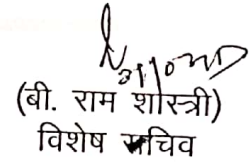 (बी. राम शास्त्री)
विशेष सचिव